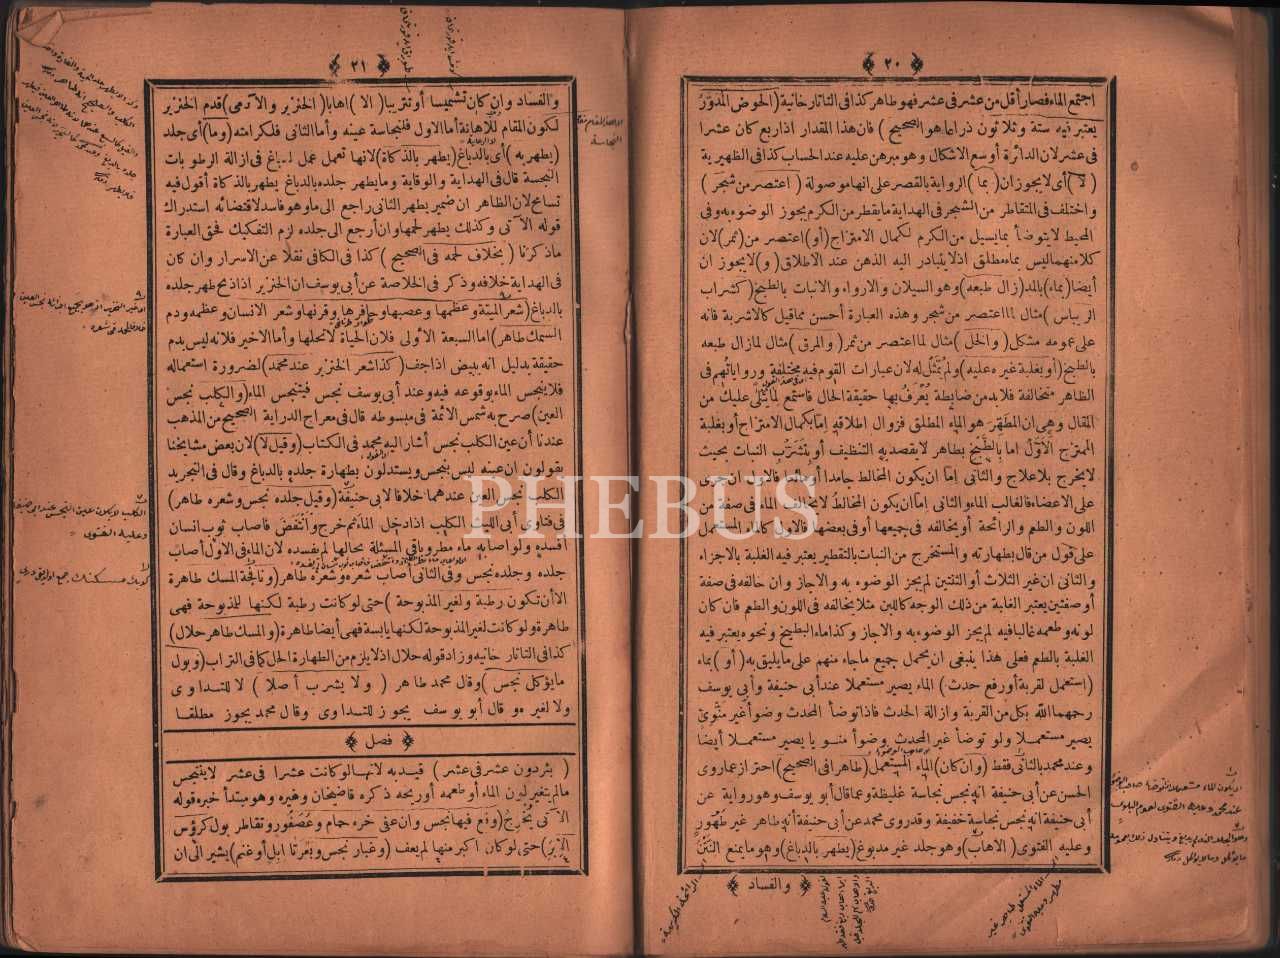 ﴿ ٢٠ ﴾
اجتمع الماء فصار أقل من عشر فى عشر فهو طاهر كذا فى التاتارخانية (الحوض المدوّر
يعتبر فيه ستة وثلاثون ذراعا هو الصحيح) فان هذا المقدار اذا ربع كان عشرا
فى عشر لان الدائرة أوسع الاشكال وهو مبرهن عليه عند الحساب كذا فى الظهيرية
(لا) أى لا يجوز ان (بما) الرواية بالقصر على انها موصولة (اعتصر من شجر)
واختلف فى المتقاطر من الشجر فى الهداية ما يقطر من الكرم يجوز الوضوء به وفى
المحيط لا يتوضأ بما يسيل من الكرم لكمال الامتزاج (أو) اعتصر من (ثمر) لان
كلا منهما ليس بماء مطلق اذ لا يتبادر اليه الذهن عند الاطلاق (و) لا يجوز ان
أيضا (بماء) بالمد (زال طبعه) وهو السيلان والارواء والانبات بالطبخ (كشراب
الريباس) مثال لما اعتصر من شجر وهذه العبارة أحسن مما قيل كالاشربة فانه
على عمومه مشكل (والخل) مثال لما اعتصر من ثمر (والمرق) مثال لما زال طبعه
بالطبخ (أو بغلبة غيره عليه) ولم يمثل له لان عبارات القوم فيه مختلفة ورواياتهم فى
الظاهر متخالفة فلا بد من ضابطة يعرف بها حقيقة الحال فاستمع لما يتلى عليك من
المقال وهى ان المطهر هو الماء المطلق فزوال اطلاقه اما بكمال الامتزاج أو بغلبة
الممتزج الاول اما بالطبخ بطاهر لا يقصد به التنظيف أو بتشرب النبات بحيث
لا يخرج بلا علاج والثانى اما ان يكون المخالط جامدا أو مائعا فالاول ان جرى
على الاعضاء فالغالب الماء والثانى اما ان يكون المخالط لا يخالف الماء فى صفة من
اللون والطعم والرائحة أو يخالفه فى جميعها أو فى بعضها فالاول كالماء المستعمل
على قول من قال بطهارته والمستخرج من النبات بالتقطير يعتبر فيه الغلبة بالاجزاء
والثانى ان غير الثلاث أو الثنتين لم يجز الوضوء به والا جاز وان خالفه فى صفة
أو صفتين يعتبر الغلبة من ذلك الوجه كاللبن مثلا يخالفه فى اللون والطعم فان كان
لونه وطعمه غالبا فيه لم يجز الوضوء به والا جاز وكذا ماء البطيخ ونحوه يعتبر فيه
الغلبة بالطعم فعلى هذا ينبغى ان يحمل جميع ما جاء منهم على ما يليق به (أو) بماء
(استعمل لقربة أو رفع حدث) الماء يصير مستعملا عند أبى حنيفة وأبى يوسف
رحمهما الله بكل من القربة وازالة الحدث فاذا توضأ المحدث وضوأ غير منوى
يصير مستعملا ولو توضأ غير المحدث وضوأ منويا يصير مستعملا أيضا
وعند محمد بالثانى فقط (وان كان) الماء المستعمل (طاهرا فى الصحيح) احتراز عما روى
الحسن عن أبى حنيفة انه نجس نجاسة غليظة وعما قال أبو يوسف وهو رواية عن
أبى حنيفة انه نجس نجاسة خفيفة وقد روى محمد عن أبى حنيفة أنه طاهر غير طهور
وعليه الفتوى (الاهاب) وهو جلد غير مدبوغ (يطهر بالدباغ) وهو ما يمنع النتن
﴿ والفساد ﴾
﴿ ٢١ ﴾
والفساد وان كان تشميسا أو تتريبا (الا) اهاب (الخنزير والآدمى) قدم الخنزير
لكون المقام للاهانة أما الاول فلنجاسة عينه وأما الثانى فلكرامته (وما) أى جلد
(يطهر به) أى بالدباغ (يطهر بالذكاة) لانها تعمل عمل الدباغ فى ازالة الرطوبات
النجسة قال فى الهداية والوقاية وما يطهر جلده بالدباغ يطهر بالذكاة أقول فيه
تسامح لان الظاهر ان ضمير يطهر الثانى راجع الى ما وهو فاسد لاقتضائه استدراك
قوله الآتى وكذلك يطهر لحمها وان أرجع الى جلده لزم التفكيك فحق العبارة
ما ذكرنا (بخلاف لحمه فى الصحيح) كذا فى الكافى نقلا عن الاسرار وان كان
فى الهداية خلافه وذكر فى الخلاصة عن أبى يوسف ان الخنزير اذا ذبح طهر جلده
بالدباغ (شعر الميتة وعظمها وعصبها وحافرها وقرنها وشعر الانسان وعظمه ودم
السمك طاهر) اما السبعة الأولى فلان الحياة لا تحلها وأما الاخير فلانه ليس بدم
حقيقة بدليل انه يبيض اذا جف (كذا شعر الخنزير عند محمد) لضرورة استعماله
فلا ينجس الماء بوقوعه فيه وعند أبى يوسف نجس فينجس الماء (والكلب نجس
العين) صرح به شمس الائمة فى مبسوطه قال فى معراج الدراية الصحيح من المذهب
عندنا أن عين الكلب نجس أشار اليه محمد فى الكتاب (وقيل لا) لان بعض مشايخنا
يقولون ان عينه ليس بنجس ويستدلون بطهارة جلده بالدباغ وقال فى التجريد
الكلب نجس العين عندهما خلافا لابى حنيفة (وقيل جلده نجس وشعره طاهر)
فى فتاوى أبى الليث الكلب اذا دخل الماء ثم خرج وانتفض فاصاب ثوب انسان
أفسده ولو أصابه ماء مطر وباقى المسئلة بحالها لم يفسده لان الماء فى الاول أصاب
جلده وجلده نجس وفى الثانى أصاب شعره وشعره طاهر (ونافجة المسك طاهرة
الا أن تكون رطبة ولغير المذبوحة) حتى لو كانت رطبة لكنها للمذبوحة فهى
طاهرة ولو كانت لغير المذبوحة لكنها يابسة فهى أيضا طاهرة (والمسك طاهر حلال)
كذا فى التاتارخانيه وزاد قوله حلال اذ لا يلزم من الطهارة الحل كما فى التراب (وبول
ما يؤكل نجس) وقال محمد طاهر (ولا يشرب أصلا) لا للتداوى
ولا لغيره وقال أبو يوسف يجوز للتداوى وقال محمد يجوز مطلقا
﴿ فصل ﴾
(بئر دون عشر فى عشر) قيد به لانها لو كانت عشرا فى عشر لا يتنجس
ما لم يتغير لون الماء أو طعمه أو ريحه ذكره قاضيخان وغيره وهو مبتدأ خبره قوله
الآتى ينزح (وقع فيها نجس وان عفى خرء حمام وعصفور وتقاطر بول كرؤس
الابر) حتى لو كان أكبر منها لم يعف (وغبار نجس وبعرتا ابل أو غنم) يشير الى ان
PHEBUS